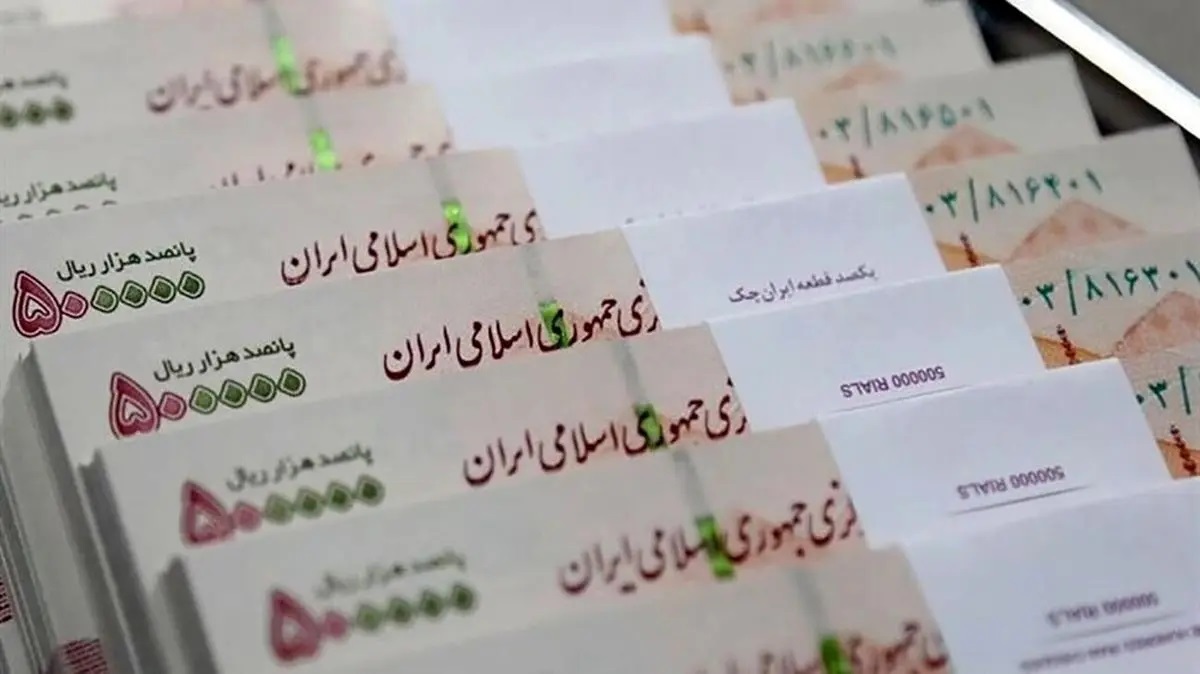 پانصد هزار
جمهوری اسلامی ایران
۸۱۶۶۰۱
پانصد هزار
۰۳/۸۱۶۵۰۱
پانصد هزار ریال
۵۰۰۰۰۰
جمهوری اسلامی ایران
۰۳/۸۱۶۴۰۱
پانصد هزار ریال
۵۰۰۰۰۰
جمهوری اسلامی ایران
یکصد قطعه ایران چک
۰۳/۸۱۶۳۰۱
پانصد هزار ریال
۵۰۰۰۰۰
جمهوری اسلامی ایران
500000 RIALS
۰۳/
پانصد هزار ریال
۵۰۰۰۰۰
جمهوری اسلامی ایران
500000 RIALS
جمهوری
500000 RIALS
HUNDRED IRAN